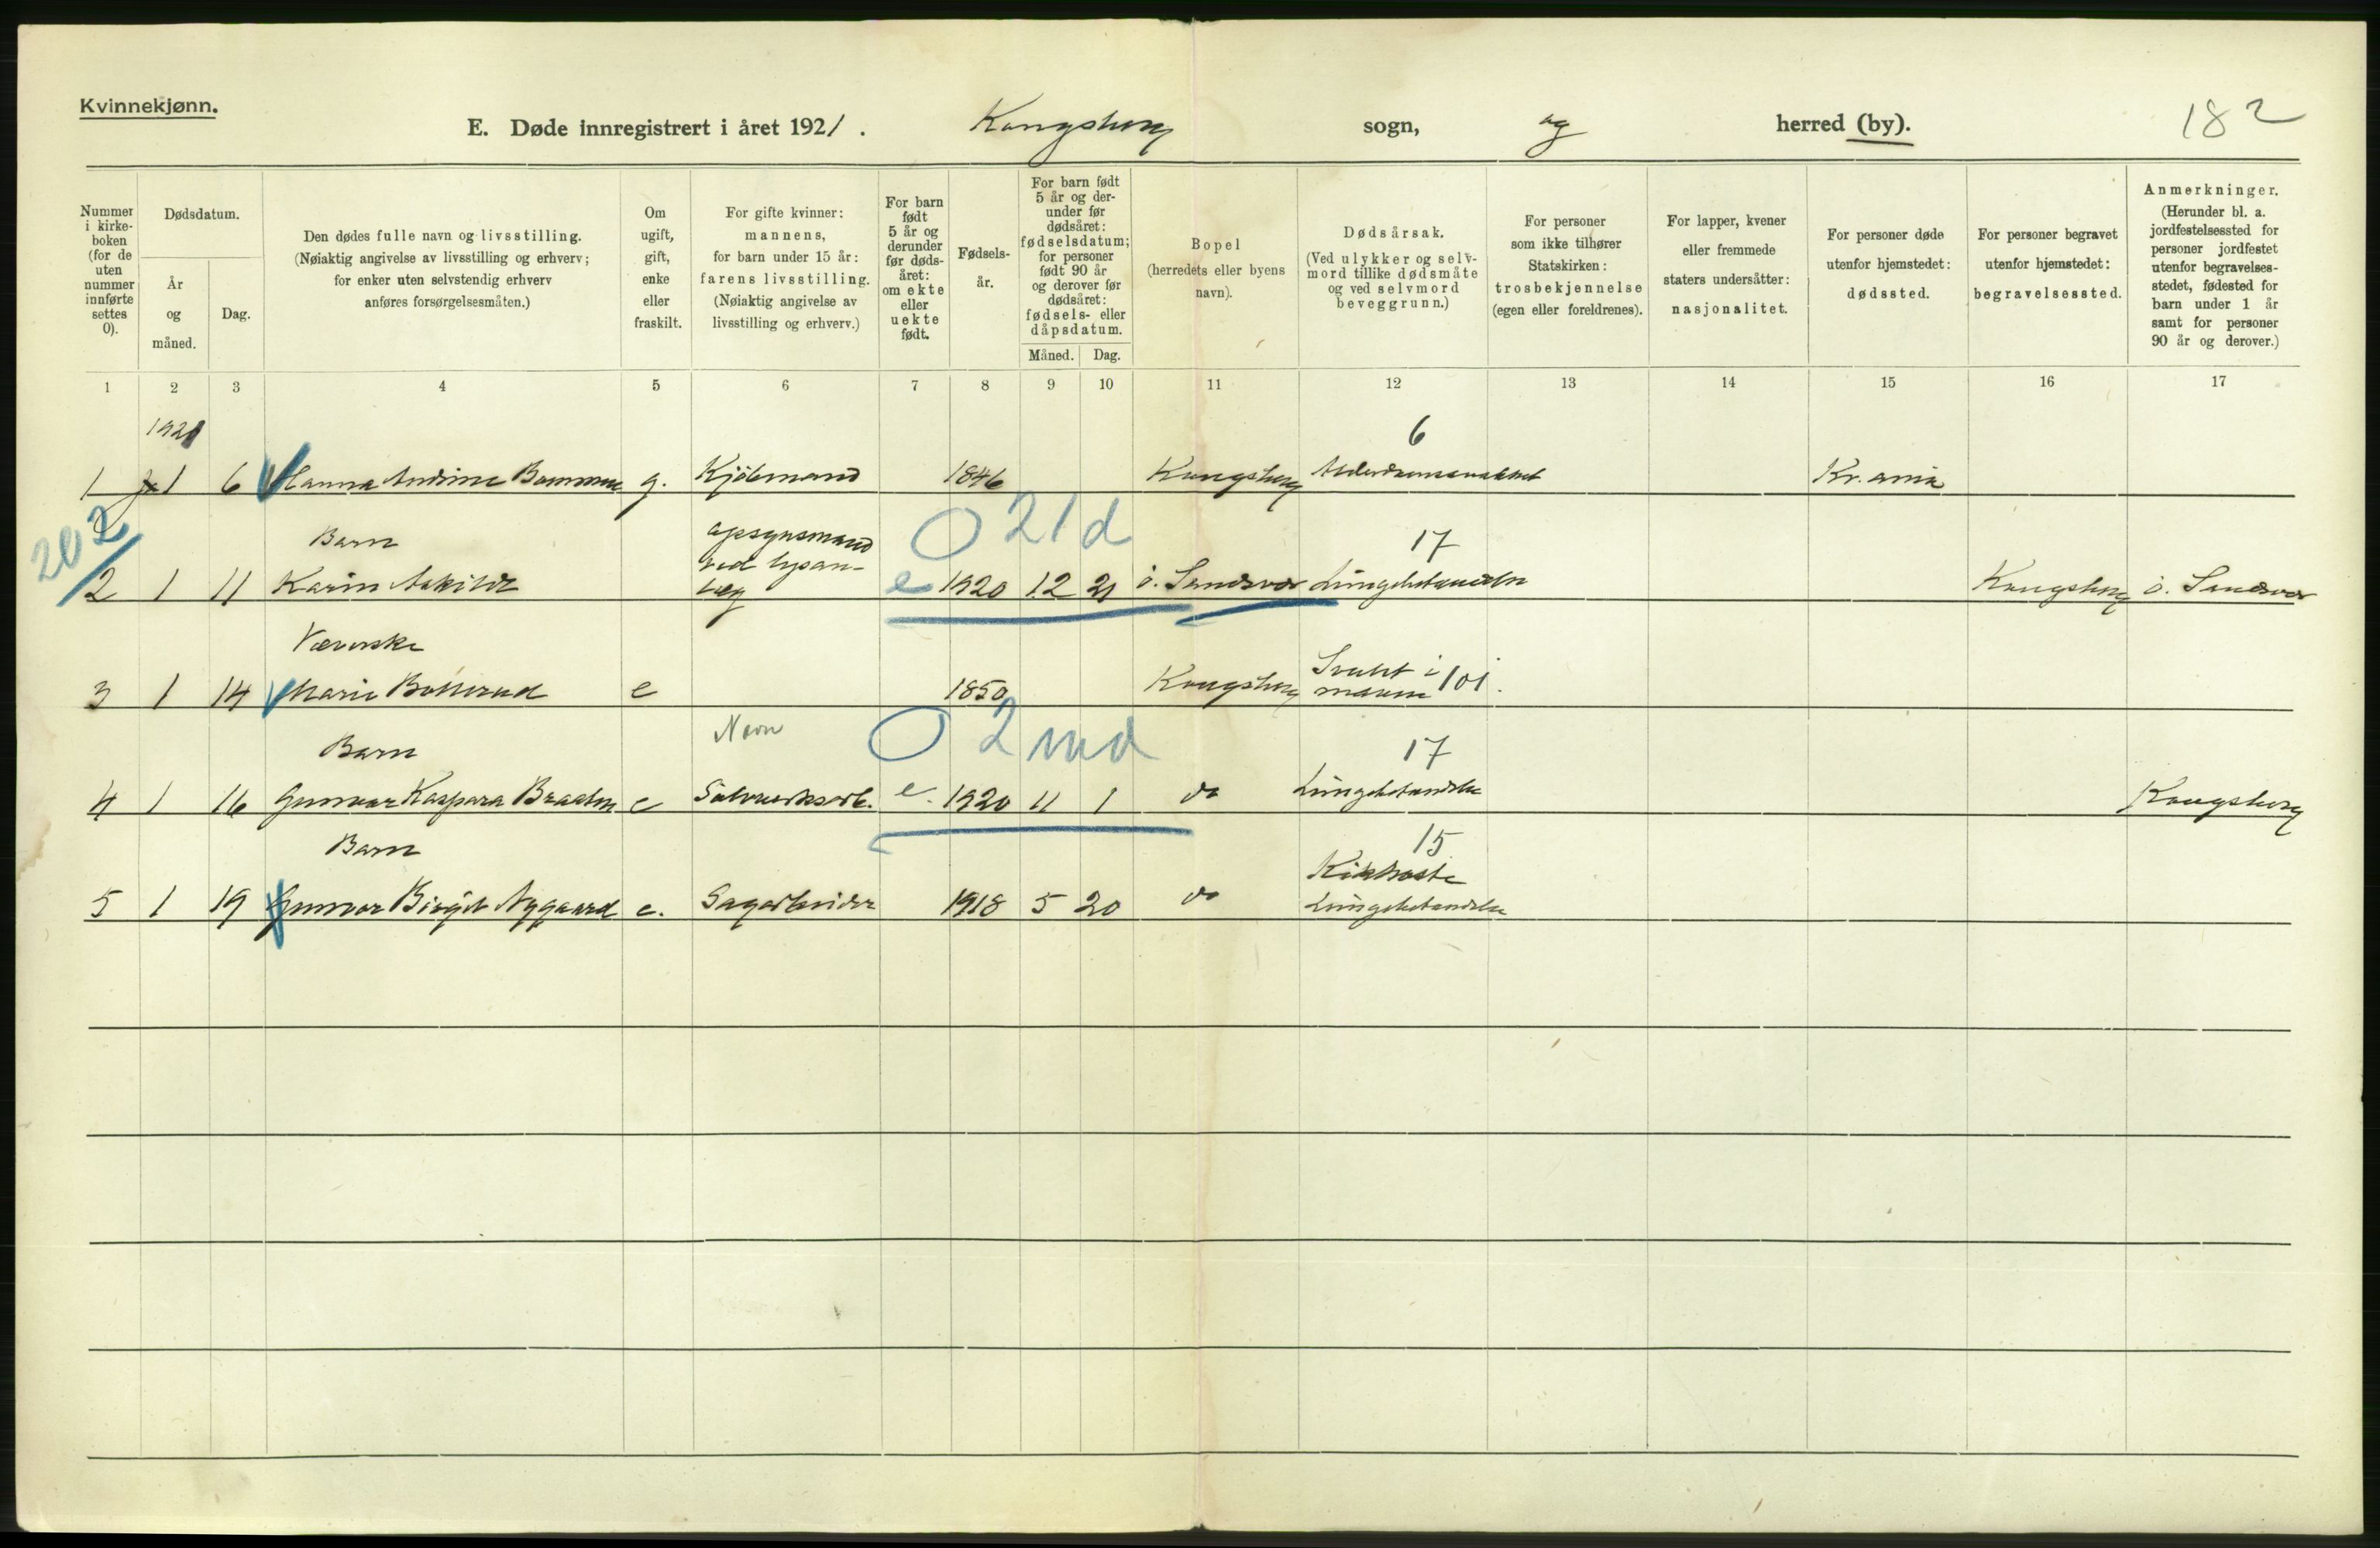 Kvinnekjønn.
E. Døde innregistrert i året 1921. Kongsberg sogn, og herred (by). 182
Nummer i kirkeboken (for de uten nummer innførte settes 0).
Dødsdatum.
År og måned.
Dag.
Den dødes fulle navn og livsstilling. (Nøiaktig angivelse av livsstilling og erhverv; for enker uten selvstendig erhverv anføres forsørgelsesmåten.)
Om ugift, gift, enke eller fraskilt.
For gifte kvinner: mannens, for barn under 15 år: farens livsstilling. (Nøiaktig angivelse av livsstilling og erhverv.)
For barn født 5 år og derunder før dødsåret: om ekte eller uekte født.
Fødselsår.
For barn født 5 år og derunder før dødsåret: fødselsdatum; for personer født 90 år og derover før dødsåret: fødsels- eller dåpsdatum.
Måned. Dag.
Bopel (herredets eller byens navn).
Dødsårsak. (Ved ulykker og selvmord tillike dødsmåte og ved selvmord beveggrunn.)
For personer som ikke tilhører Statskirken: trosbekjennelse (egen eller foreldrenes).
For lapper, kvener eller fremmede staters undersåtter: nasjonalitet.
For personer døde utenfor hjemstedet: dødssted.
For personer begravet utenfor hjemstedet: begravelsessted.
Anmerkninger. (Herunder bl. a. jordfestelsessted for personer jordfestet utenfor begravelsesstedet, fødested for barn under 1 år samt for personer 90 år og derover.)
1 2 3 4 5 6 7 8 9 10 11 12 13 14 15 16 17
1921 6
1 1 6 Hanna Andrine g. Kjøbmand 1846 Kongsberg Kr.ania
202 Barn opsynsmand O 21 d 17
ved lysan-
2 1 11 Karin læg e 1920 12 21 ö. Sandsvær Lungebetændelse Kongsberg ö. Sandsvær
Væverske Svulst i
3 1 14 Marie e 1850 Kongsberg maven 101.
Barn Navn O 2 md 17
4 1 16 Gunvor Kaspara Braaten e Sølvverksarb. e. 1920 11 1 do Lungebetændelse Kongsberg
Barn 15
Kikhoste
5 1 19 Gunvor Birgit Nygaard e. Sagarbeider 1918 5 20 do Lungebetændelse